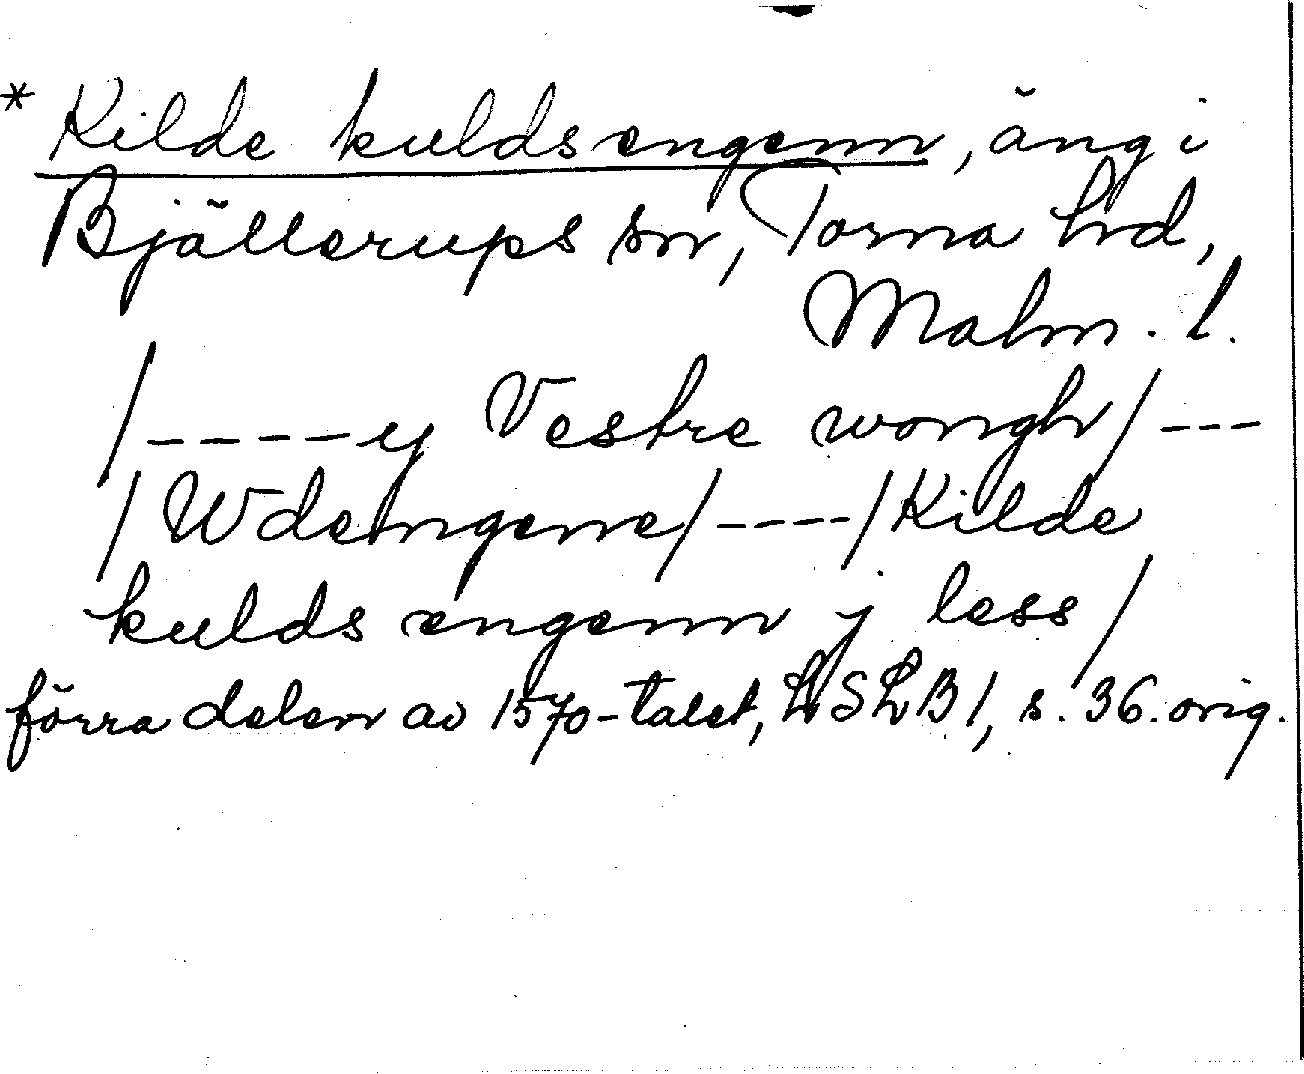 * Kilde kuldsengenn, äng i
Bjällerups sn, Torna hd,
Malm. l.
/----y Vestre wongh/---
/Wdengene/----/Kilde
kulds engenn j less/
förra delen av 1570-talet, LSLB 1, s. 36. orig.